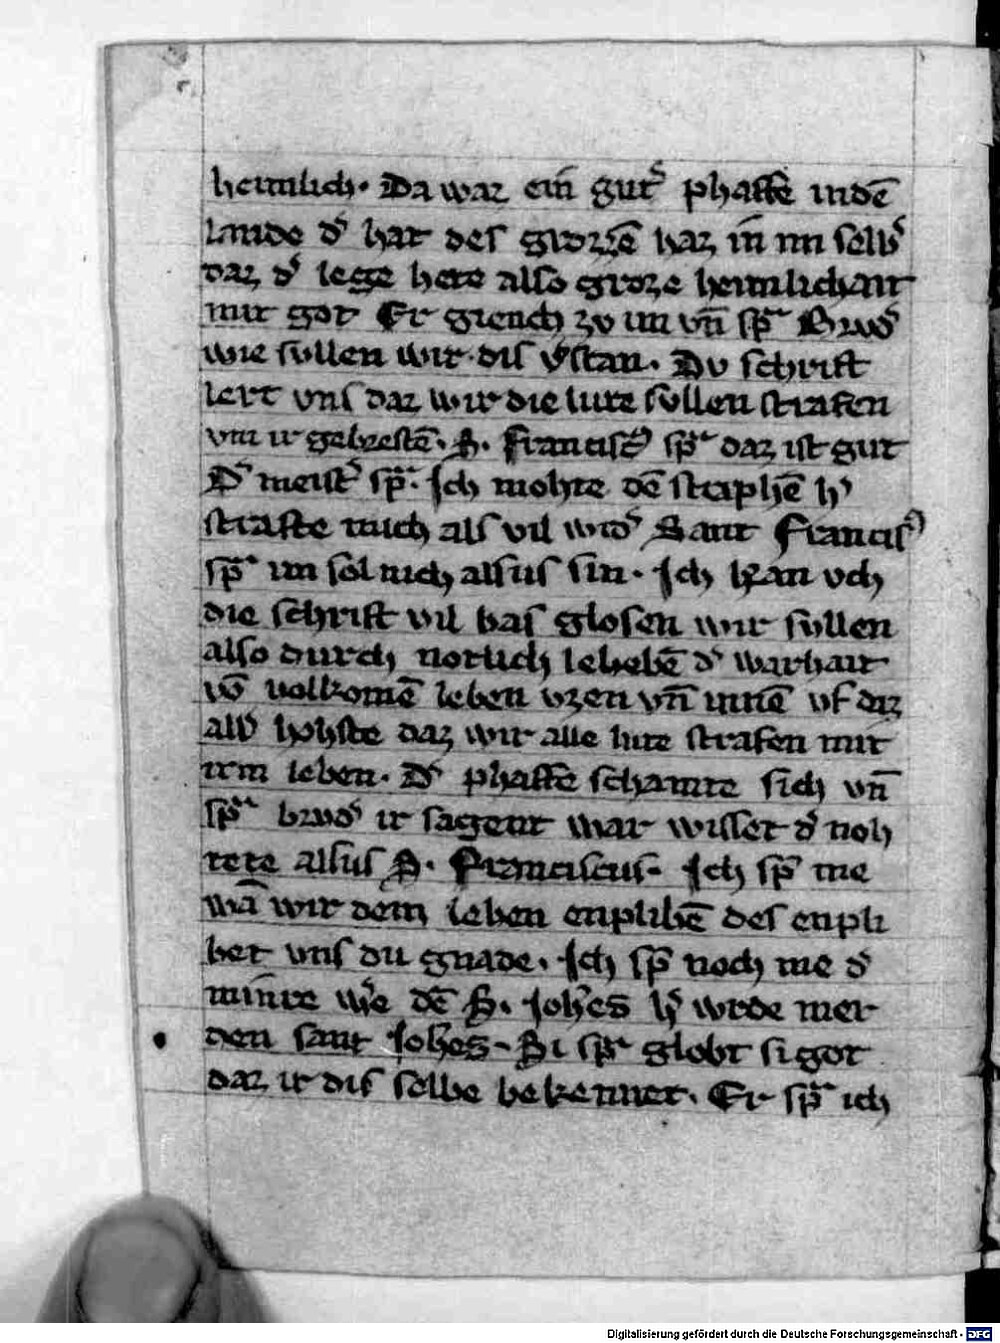 heimlich. Da waz ein gut͛ phaffe indē
lande d͛ hat des grozzē haz in im selb͛
daz d͛ lege hete also groze heimlichait
mit got Er giench zv im vn̄ sp͛ᵃ Brvd͛
wie svllen wir dis v͛stan. Dv schrift
lert vns daz wir die lute svllen strafen
vm ir gebrestē. S. Francisc͛ sp͛ᵃ daz ist gut
D͛ meist͛ sp͛ᵃ. Ich mohte dē straphē h͛
strafte mich als vil wid͛ Sant Francis͛
sp͛ᵃ im sol nich alsus sin. Ich kan och
die schrift vil bas glosen wir svllen
also durch notlich lebē d͛ warhait
vō vollkomē leben vzen vn̄ innē vf daz
all͛ hohste daz wir alle lute strafen mit
irm leben. D͛ phaffe schamte sich vn̄
sp͛ᵃ brvd͛ ir sagent war wisset d͛ noh
tete alsus S. Franciscus. Ich sp̄ me
wā wir dem leben enplibē des enpli
bet vns du gnade. Ich sp̄ noch me d͛
minre w͛e dē S. Joh̄es h͛ wrde mer
den sant Joh̄es. Si sp͛ᵃ globt si got
daz ir dis selbe bekennet. Er sp͛ᵃ ich
Digitalisierung gefördert durch die Deutsche Forschungsgemeinschaft - DFG